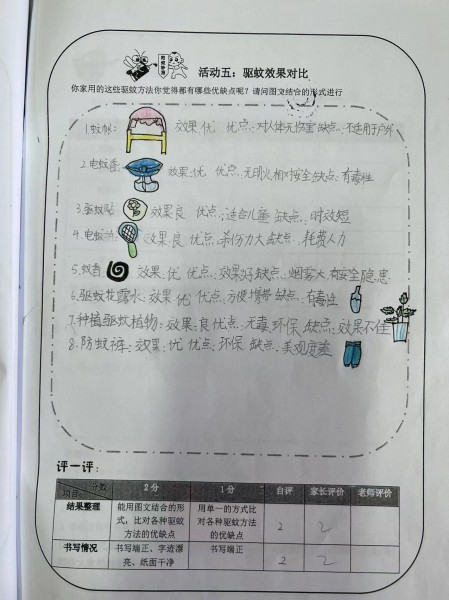 活动五：驱蚊效果对比
你家用的这些驱蚊方法你觉得都有哪些优缺点呢？请同图文结合的形式进行
1.蚊帐： 效果：优 优点：对人体无伤害 缺点：不适用于户外
2.电蚊香： 效果：优 优点：无明火相对安全 缺点：有毒性
3.驱蚊贴 效果良 优点：适合儿童 缺点：时效短
4.电蚊拍： 效果：良 优点：杀伤力大 缺点：耗费人力
5.蚊香： 效果：优 优点：效果好 缺点：烟雾大有安全隐患
6.驱蚊花露水：效果 优 优点：方便携带 缺点：有毒性
7.种植驱蚊植物：效果：良 优点：无毒环保 缺点：效果不佳
8.防蚊裤：效果：优 优点：环保 缺点：美观度差
评一评：
项目 分数 2分 1分 自评 家长评价 老师评价
结果整理 能用图文结合的形式，比对各种驱蚊方法的优缺点 用单一的方式比对各种驱蚊方法的优缺点 2 2
书写情况 书写端正、字迹漂亮、纸面干净 书写端正 2 2